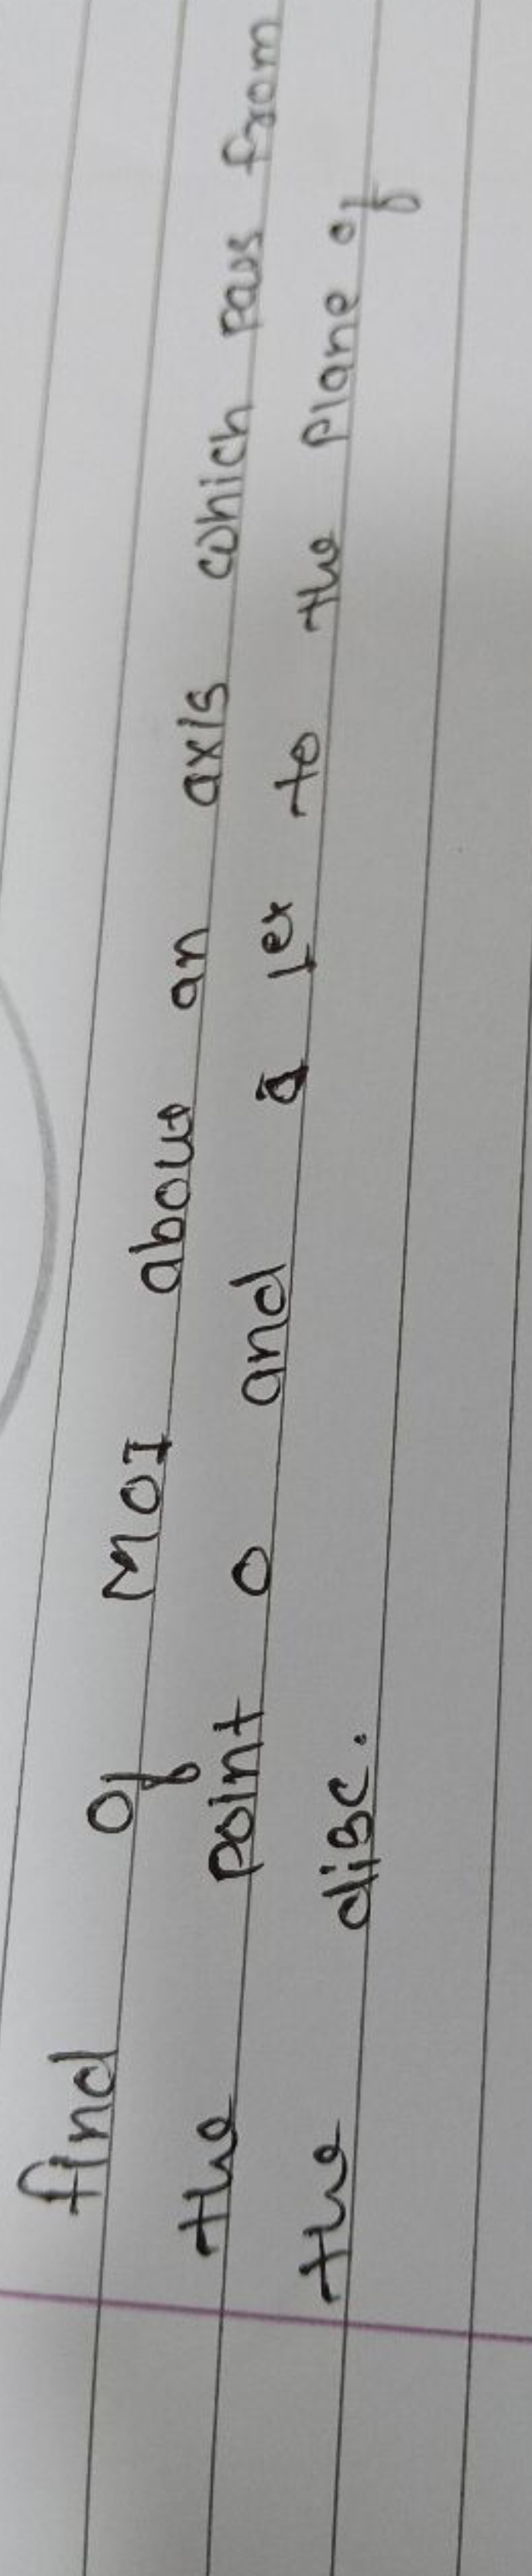 find of MOI about an axis which pass from
the point O and a ⊥er to the plane of
the disc.